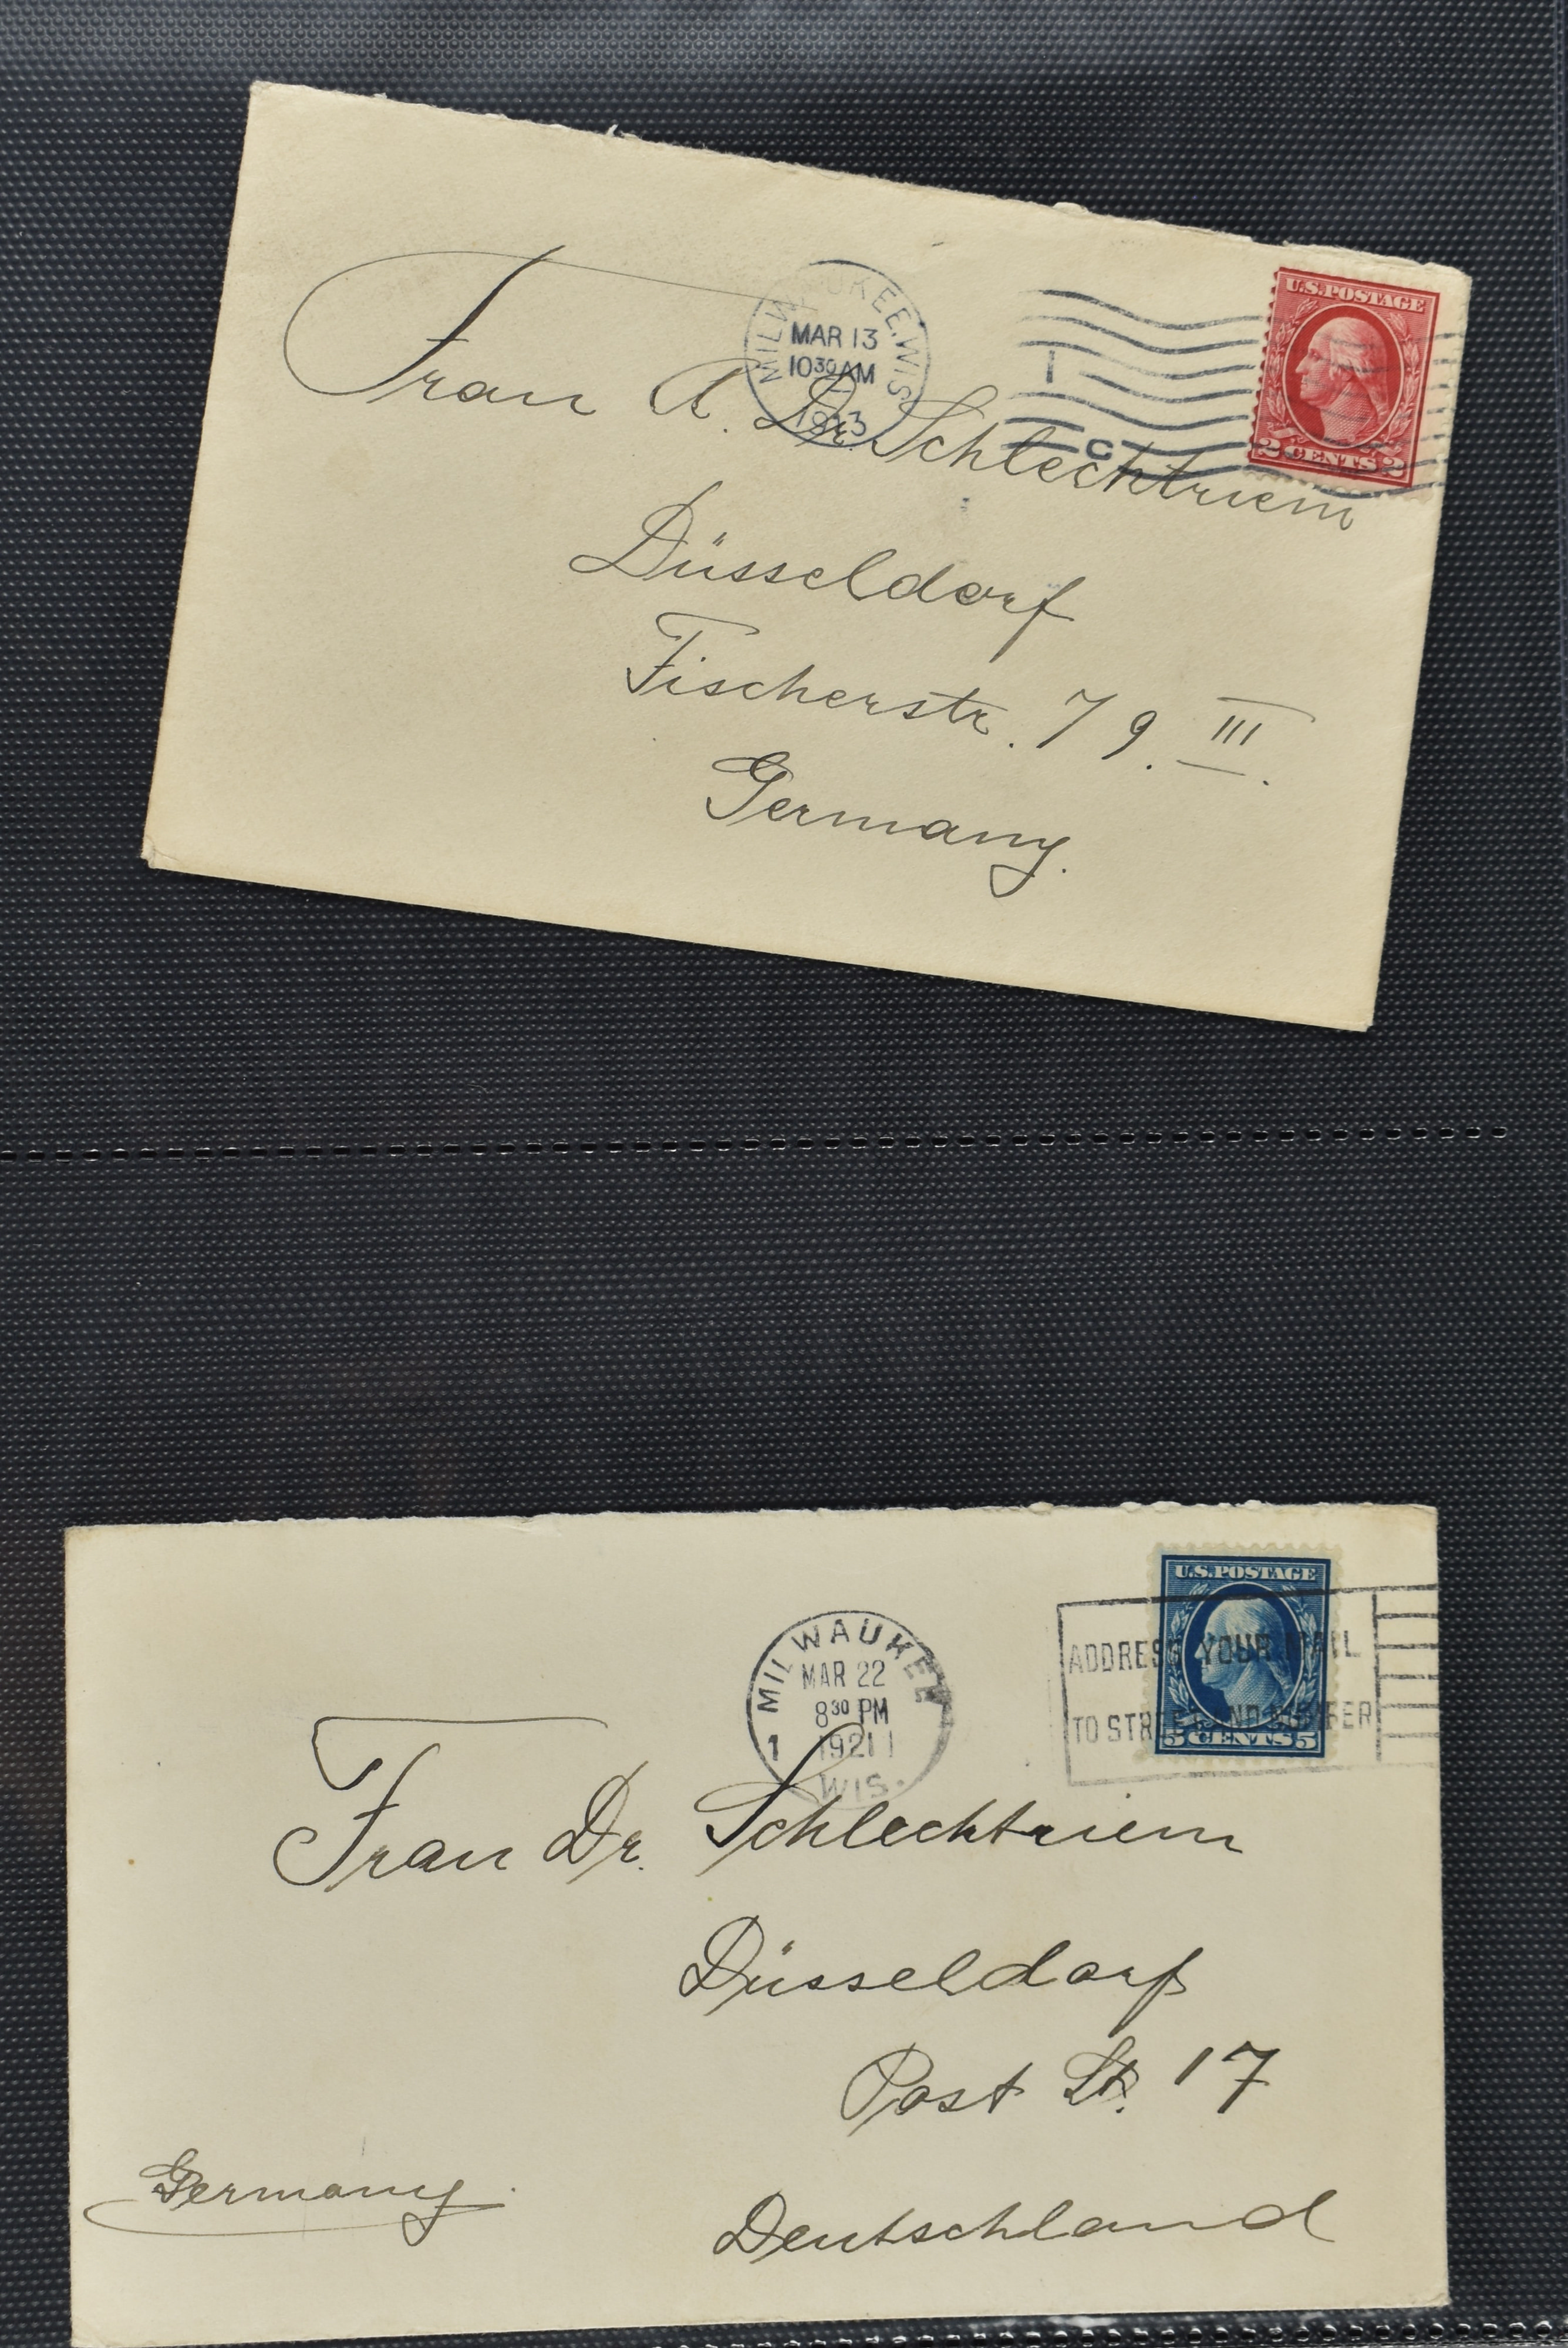 U.S. POSTAGE
MILWAUKEE, WIS.
MAR 13
10 30 AM
1913
1
C
2 CENTS 2
Frau A. Dr. Schlechtriem
Düsseldorf
Fischerstr. 79. III.
Germany.
U.S. POSTAGE
MILWAUKEE
MAR 22
8 30 PM
1 1921
WIS.
ADDRESS YOUR MAIL
TO STREET AND NUMBER
5 CENTS 5
Frau Dr. Schlechtriem
Düsseldorf
Post St. 17
Germany
Deutschland